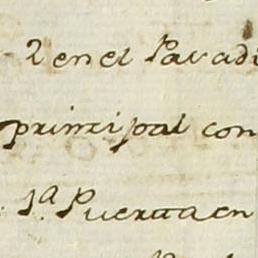 2 en el Paradi
prinzipal con
1ª Puerta en